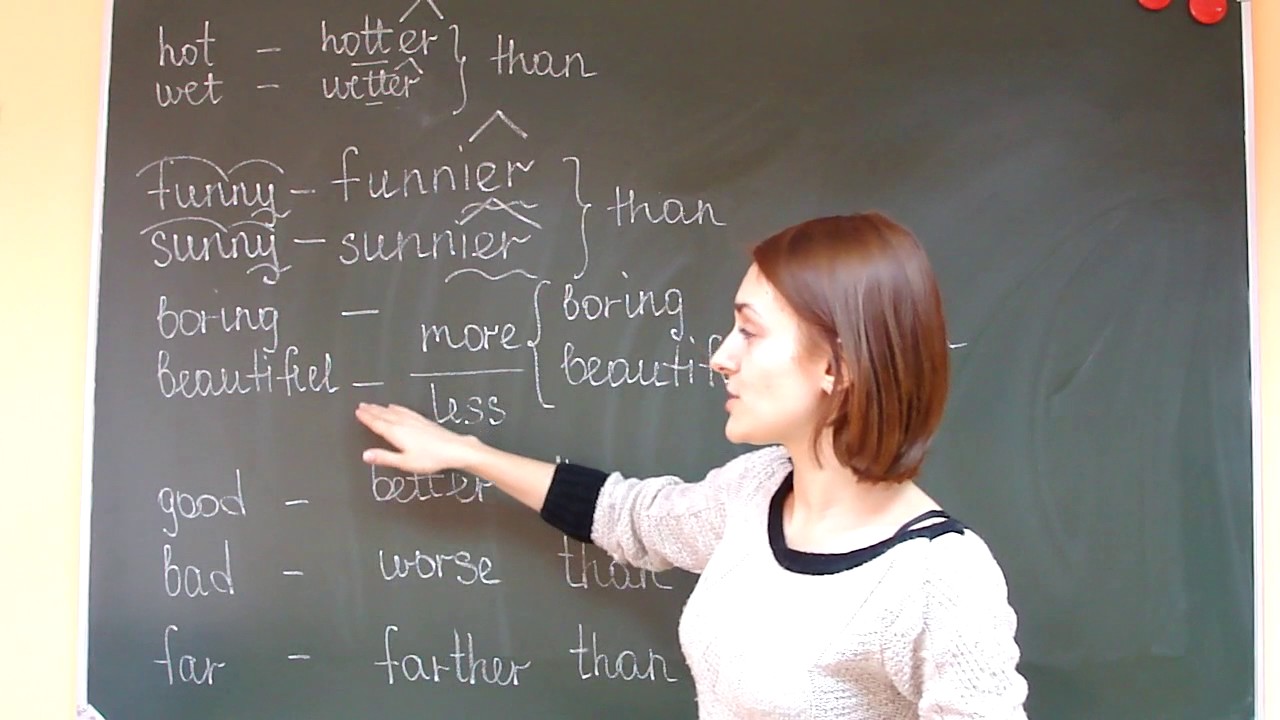 hot – hotter } than
wet – wetter
funny – funnier } than
sunny – sunnier
boring – more { boring
beautiful – less beautif
good – better
bad – worse than
far – farther than